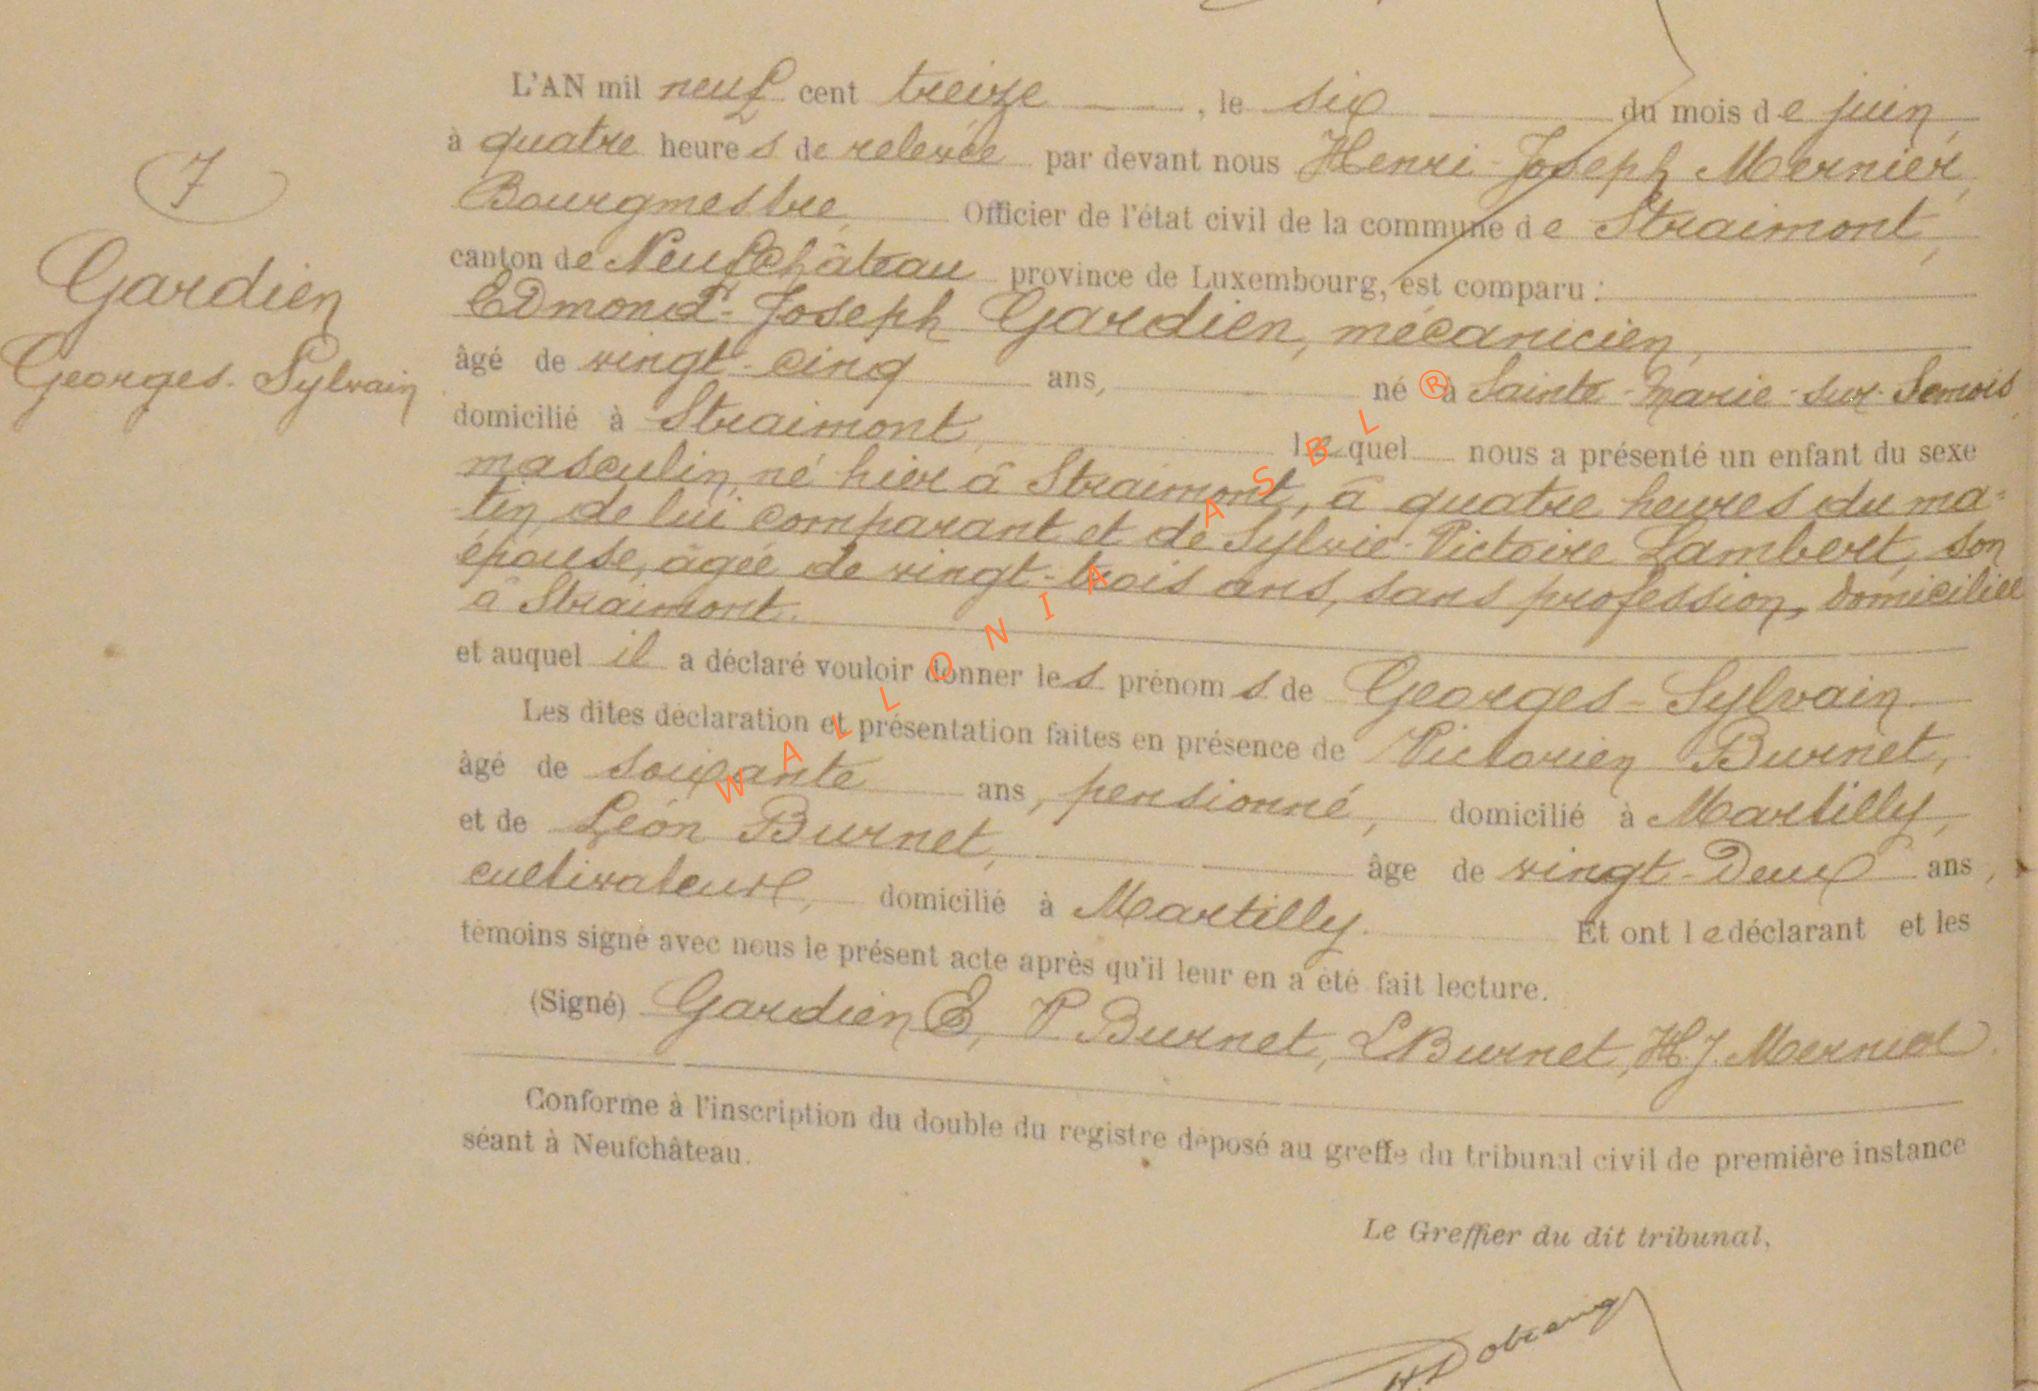 7
Gardien
Georges-Sylvain
L'AN mil neuf cent treize, le six du mois de juin,
à quatre heures de relevée par devant nous Henri-Joseph Mernier,
Bourgmestre, Officier de l'état civil de la commune de Straimont,
canton de Neufchâteau province de Luxembourg, est comparu :
Edmond-Joseph Gardien, mécanicien,
âgé de vingt-cinq ans, né à Sainte-Marie-sur-Semois,
domicilié à Straimont, lequel nous a présenté un enfant du sexe
masculin, né hier à Straimont, à quatre heures du ma-
tin de lui comparant et de Sylvie-Victoire Lambert, son
épouse, âgée de vingt-trois ans, sans profession, domiciliée
à Straimont.
et auquel il a déclaré vouloir donner les prénoms de Georges-Sylvain.
Les dites déclaration et présentation faites en présence de Victorien Burnet,
âgé de soixante ans, pensionné, domicilié à Martilly,
et de Léon Burnet, âge de vingt-deux ans,
cultivateur, domicilié à Martilly. Et ont le déclarant et les
témoins signé avec nous le présent acte après qu'il leur en a été fait lecture.
(Signé) Gardien E, V Burnet, L Burnet, H.J. Mernier.
Conforme à l'inscription du double du registre déposé au greffe du tribunal civil de première instance
séant à Neufchâteau.
Le Greffier du dit tribunal,
WALLONIA ASBL ®